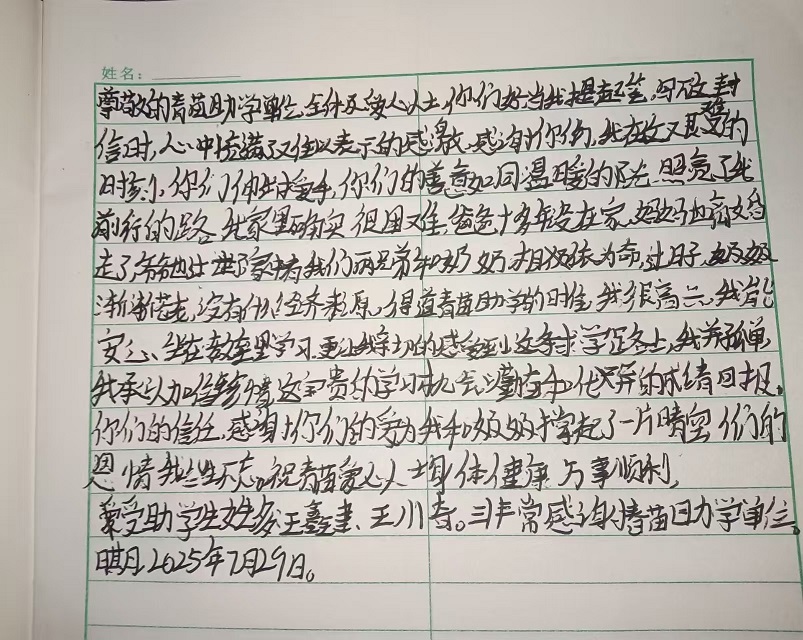 姓名：
尊敬的青苗助学单位,全体爱心人士,你们好当我提起笔,写下这封
信时,心中充满了难以表示的感激,感谢你们,我在收又艰难的
时刻,你们伸出援手,你们的善意如同温暖的阳光 照亮了我
前行的路 我家里确实很困难,爸爸十多年没在家,妈妈也离婚
走了,爷爷也过世了家中有我们两兄弟和奶奶相依为命,过日子,奶奶
渐渐苍老,没有什么经济来原,得道青苗助学的时候,我很高兴,我能
安心坐在教室里学习.更让我亲切的感受到这条求学路上,我并不孤单,
我承认加倍珍惜这宝贵的学习机会,勤奋和优异的成绩回报,
你们的信任,感谢你们的爱为我和奶奶撑起了一片晴空 们的
恩情我终生不忘,祝青苗爱心人士身体健康 万事顺利,
受助学生姓名王鑫、王川。非常感谢青苗助学单位。
日期 2025年7月29日。